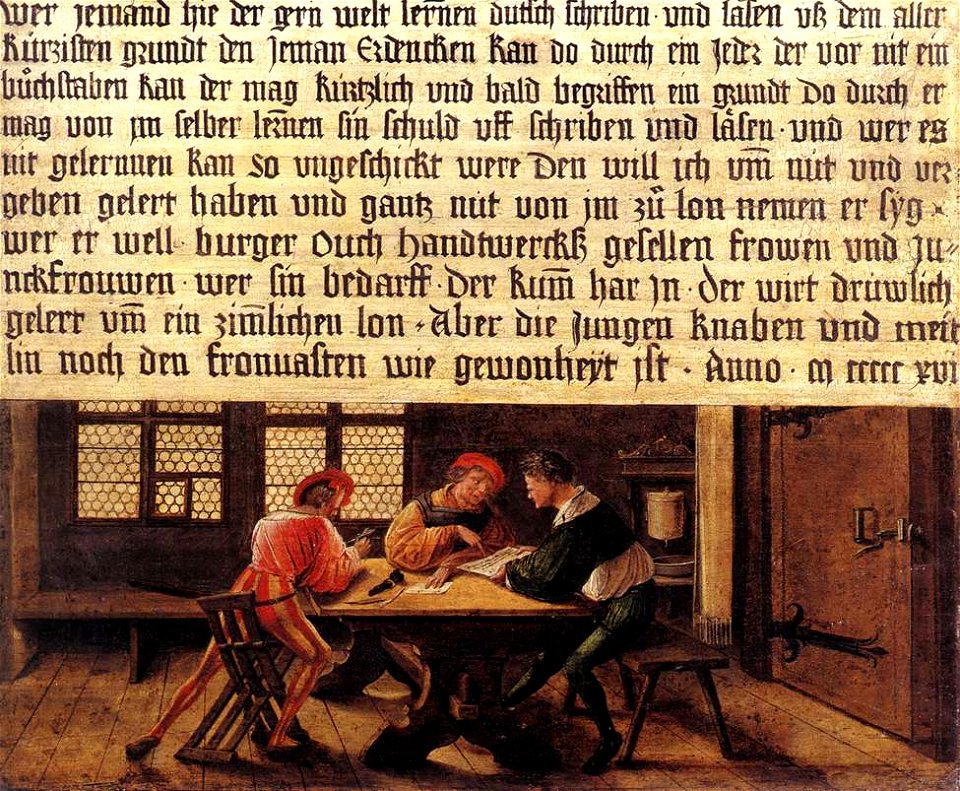 wer jemand hie der gern welt lernen dutsch schriben und läsen uß dem aller
kürzisten grundt den Jeman Erdencken kan do durch ein Jeder der vor nit ein
bůchstaben kan der mag kürtzlich und bald begriffen ein grundt do durch er
mag von jm selber lernen sin schuld uff schriben und läsen · und wer es
nit gelernnen kan so ungeschickt were Den will ich um̄ nüt und ver
geben gelert haben und gantz nüt von jm zů lon nemen er syg
wer er well burger ouch handtwercks gesellen frowen und ju
nckfrouwen · wer sin bedarff · Der kum̄ har jn · der wirt drüwlich
gelert um̄ ein zim̄lichen lon · Aber die jungen knaben und meit
lin noch den fronuasten wie gewonheyt ist · Anno · m ccccc xvi